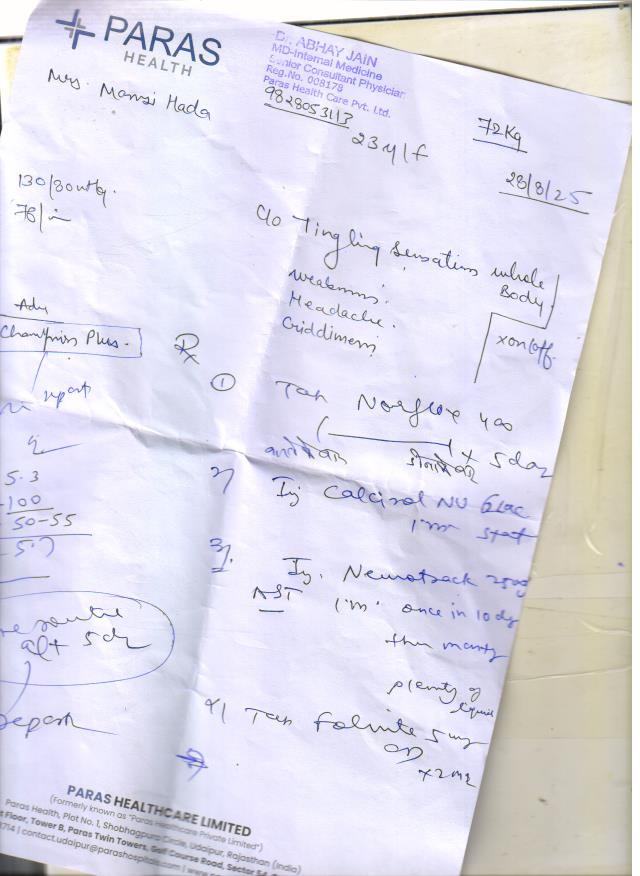 PARAS
HEALTH
Dr. ABHAY JAIN
MD-Internal Medicine
Senior Consultant Physician
Reg.No. 008178
Paras Health Care Pvt. Ltd.
9828053113
Mrs. Mansi Hada
23 y/f
72Kg
28/8/25
130/80
78/
c/o Tingling Sensation whole Body
Weakness
Headache
Giddiness
x on/off
Adv
Plus
Rx
① Tab Norflox 400
x 5 day
2) Inj Calcirol NU 6 lac
i'm' stat
3) Inj. Neurotrack
AST i'm' once in 10 dy
then
plenty of liquid
5.3
100
50-55
5.7
aft 5 d
4) Tab Folnite 5 mg
OD
PARAS HEALTHCARE LIMITED
(Formerly known as "Paras Healthcare Private Limited")
Paras Health, Plot No. 1, Shobhagpura Circle, Udaipur, Rajasthan (India)
Floor, Tower B, Paras Twin Towers, Golf Course Road, Sector 54
1714 | contact.udaipur@parashospitals.com